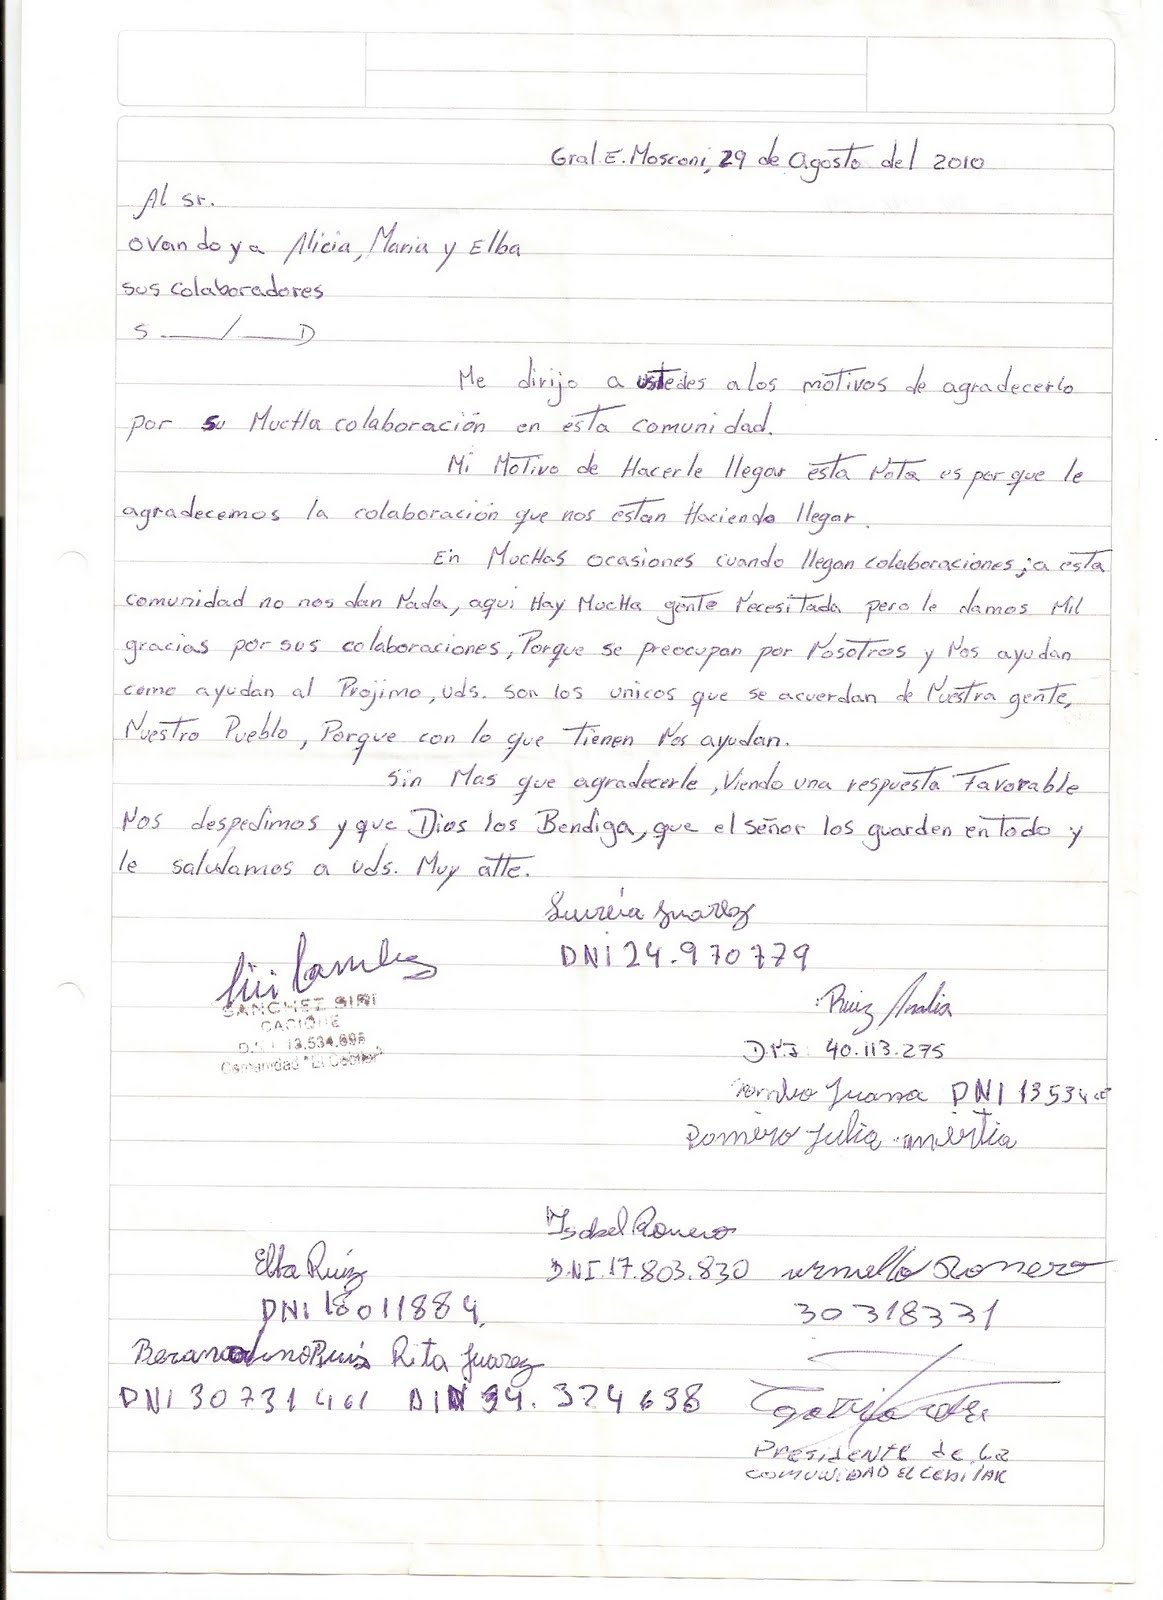 Gral. E. Mosconi, 29 de agosto del 2010
Al sr.
ovando y a Alicia, Maria y Elba
sus colaboradores
S ___/___ D
Me dirijo a ustedes a los motivos de agradecerlo
por su MucHa colaboración en esta comunidad.
Mi Motivo de Hacerle llegar esta Nota es por que le
agradecemos la colaboración que nos estan Haciendo llegar.
En MucHas ocasiones cuando llegan colaboraciones; a esta
comunidad no nos dan Nada, aqui Hay MucHa gente Necesitada pero le damos Mil
gracias por sus colaboraciones, Porque se preocupan por Nosotros y Nos ayudan
como ayudan al Projimo, uds. son los unicos que se acuerdan de Nuestra gente,
Nuestro Pueblo, Porque con lo que Tienen Nos ayudan.
Sin Mas que agradecerle, Viendo una respuesta Favorable
Nos despedimos y que Dios los Bendiga, que el señor los guarden en Todo y
le saludamos a uds. Muy atte.
Suarez
DNI 24.970779
SANCHEZ SIRI
CACIQUE
D.N.I. 13.534.695
Comunidad "El Cebilar"
Ruiz Analia
D.N.I: 40.113.275
Juana DNI 13534
Romero Julia
Isabel Romero
D.N.I. 17.803.830
Elba Ruiz
DNI 18011884,
Romero
30318331
Ruis Rita Juarez
DNI 30731461 DIN 34.324638
Presidente de La
COMUNIDAD EL CEBILAR